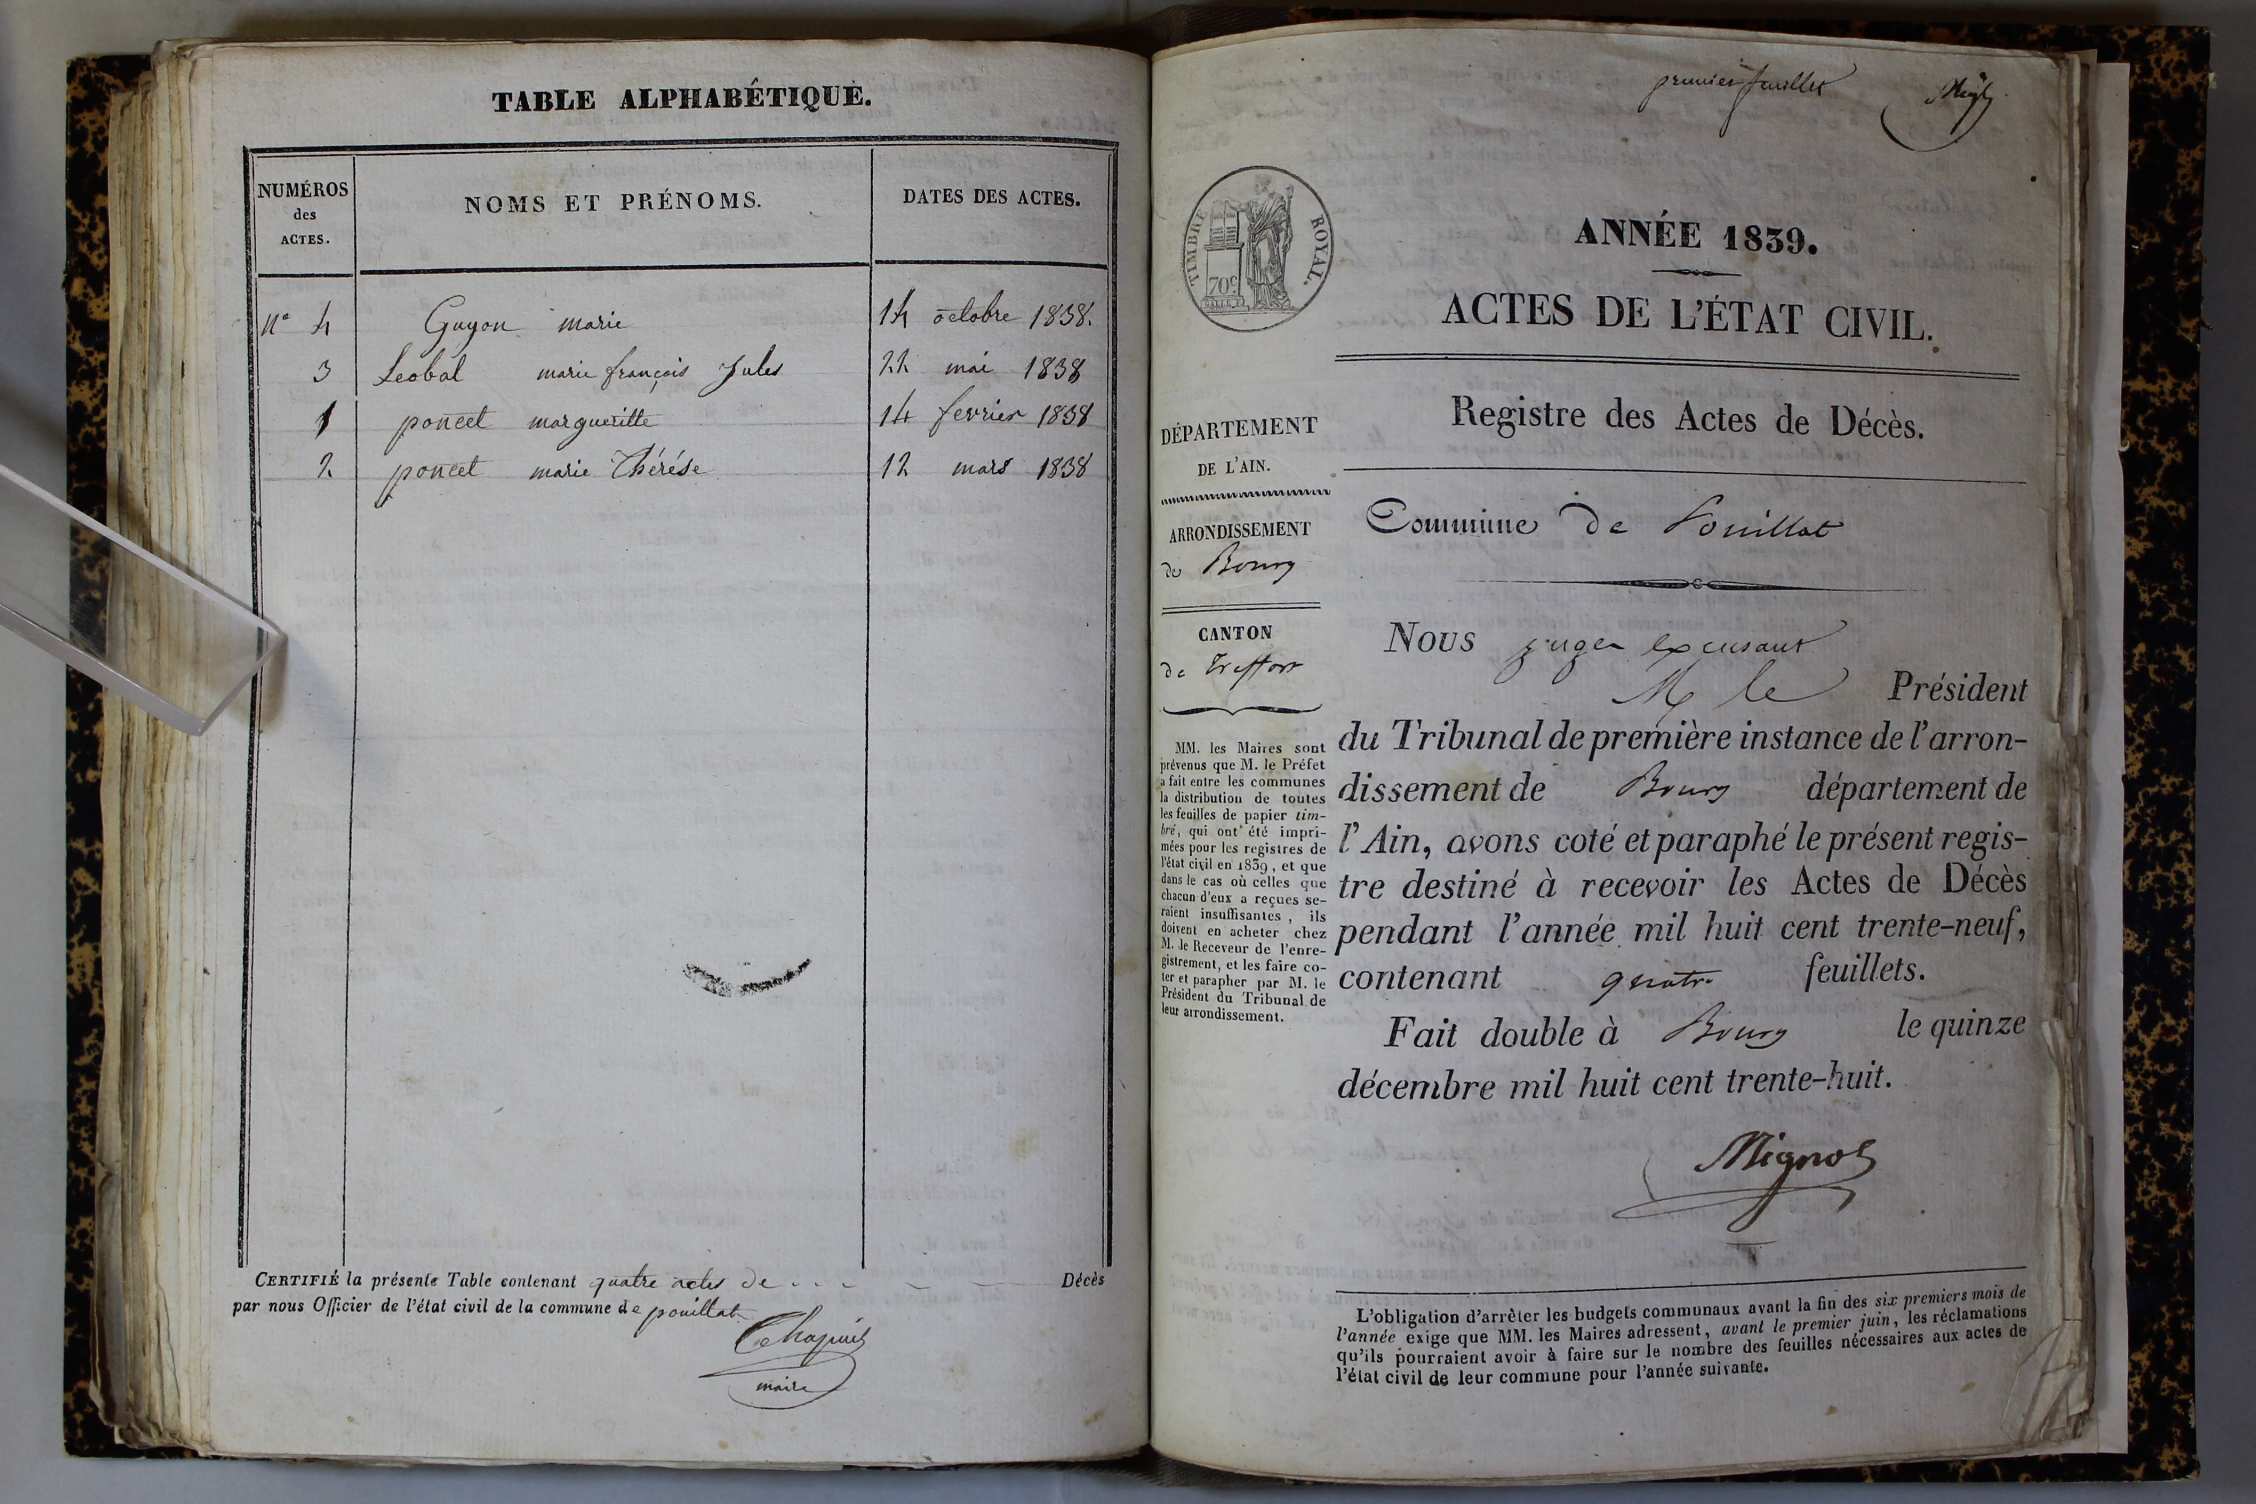 TABLE ALPHABÉTIQUE.
NUMÉROS
des
ACTES.
NOMS ET PRÉNOMS.
DATES DES ACTES.
N° 4 Guyon marie 14 octobre 1838.
3 Leobal marie françois Jules 22 mai 1838
1 poncet margueritte 14 fevrier 1838
2 poncet marie Thérése 12 mars 1838
CERTIFIÉ la présente Table contenant quatre actes de Décès
par nous Officier de l'état civil de la commune de pouillat
Chapuis
maire
premier feuillet
TIMBRE ROYAL.
70c
ANNÉE 1839.
ACTES DE L'ÉTAT CIVIL.
Registre des Actes de Décès.
DÉPARTEMENT
DE L'AIN.
ARRONDISSEMENT
de Bourg
CANTON
de Treffort
MM. les Maires sont
prévenus que M. le Préfet
a fait entre les communes
la distribution de toutes
les feuilles de papier tim-
bré, qui ont été impri-
mées pour les registres de
l'état civil en 1839, et que
dans le cas où celles que
chacun d'eux a reçues se-
raient insuffisantes, ils
doivent en acheter chez
M. le Receveur de l'enre-
gistrement, et les faire co-
ter et parapher par M. le
Président du Tribunal de
leur arrondissement.
Commune de Pouillat
Nous juge excusant
M le Président
du Tribunal de première instance de l'arron-
dissement de Bourg département de
l'Ain, avons coté et paraphé le présent regis-
tre destiné à recevoir les Actes de Décès
pendant l'année mil huit cent trente-neuf,
contenant quatre feuillets.
Fait double à Bourg le quinze
décembre mil huit cent trente-huit.
Mignot
L'obligation d'arrêter les budgets communaux avant la fin des six premiers mois de
l'année exige que MM. les Maires adressent, avant le premier juin, les réclamations
qu'ils pourraient avoir à faire sur le nombre des feuilles nécessaires aux actes de
l'état civil de leur commune pour l'année suivante.